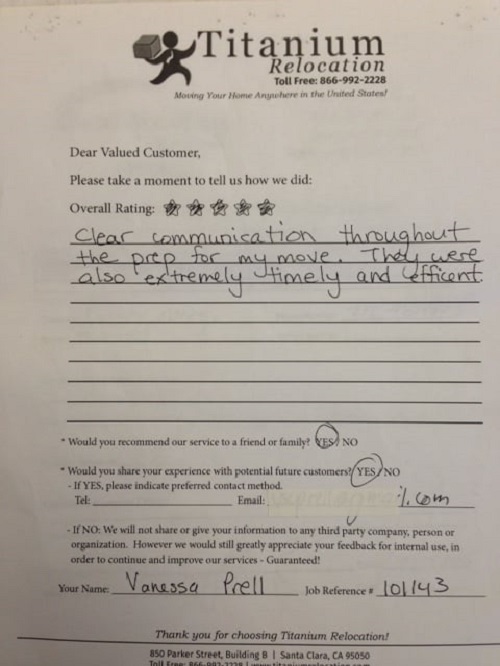 Titanium
Relocation
Toll Free: 866-992-2228
Moving Your Home Anywhere in the United States!
Dear Valued Customer,
Please take a moment to tell us how we did:
Overall Rating:
Clear communication throughout
the prep for my move. They were
also extremely timely and efficent.
* Would you recommend our service to a friend or family? YES/NO
* Would you share your experience with potential future customers? YES/NO
- If YES, please indicate preferred contact method.
Tel: Email: .com
- If NO: We will not share or give your information to any third party company, person or
organization. However we would still greatly appreciate your feedback for internal use, in
order to continue and improve our services - Guaranteed!
Your Name: Vanessa Prell Job Reference # 101143
Thank you for choosing Titanium Relocation!
850 Parker Street, Building B | Santa Clara, CA 95050
Toll Free: 866-992-2228 | www.titaniumrelocation.com